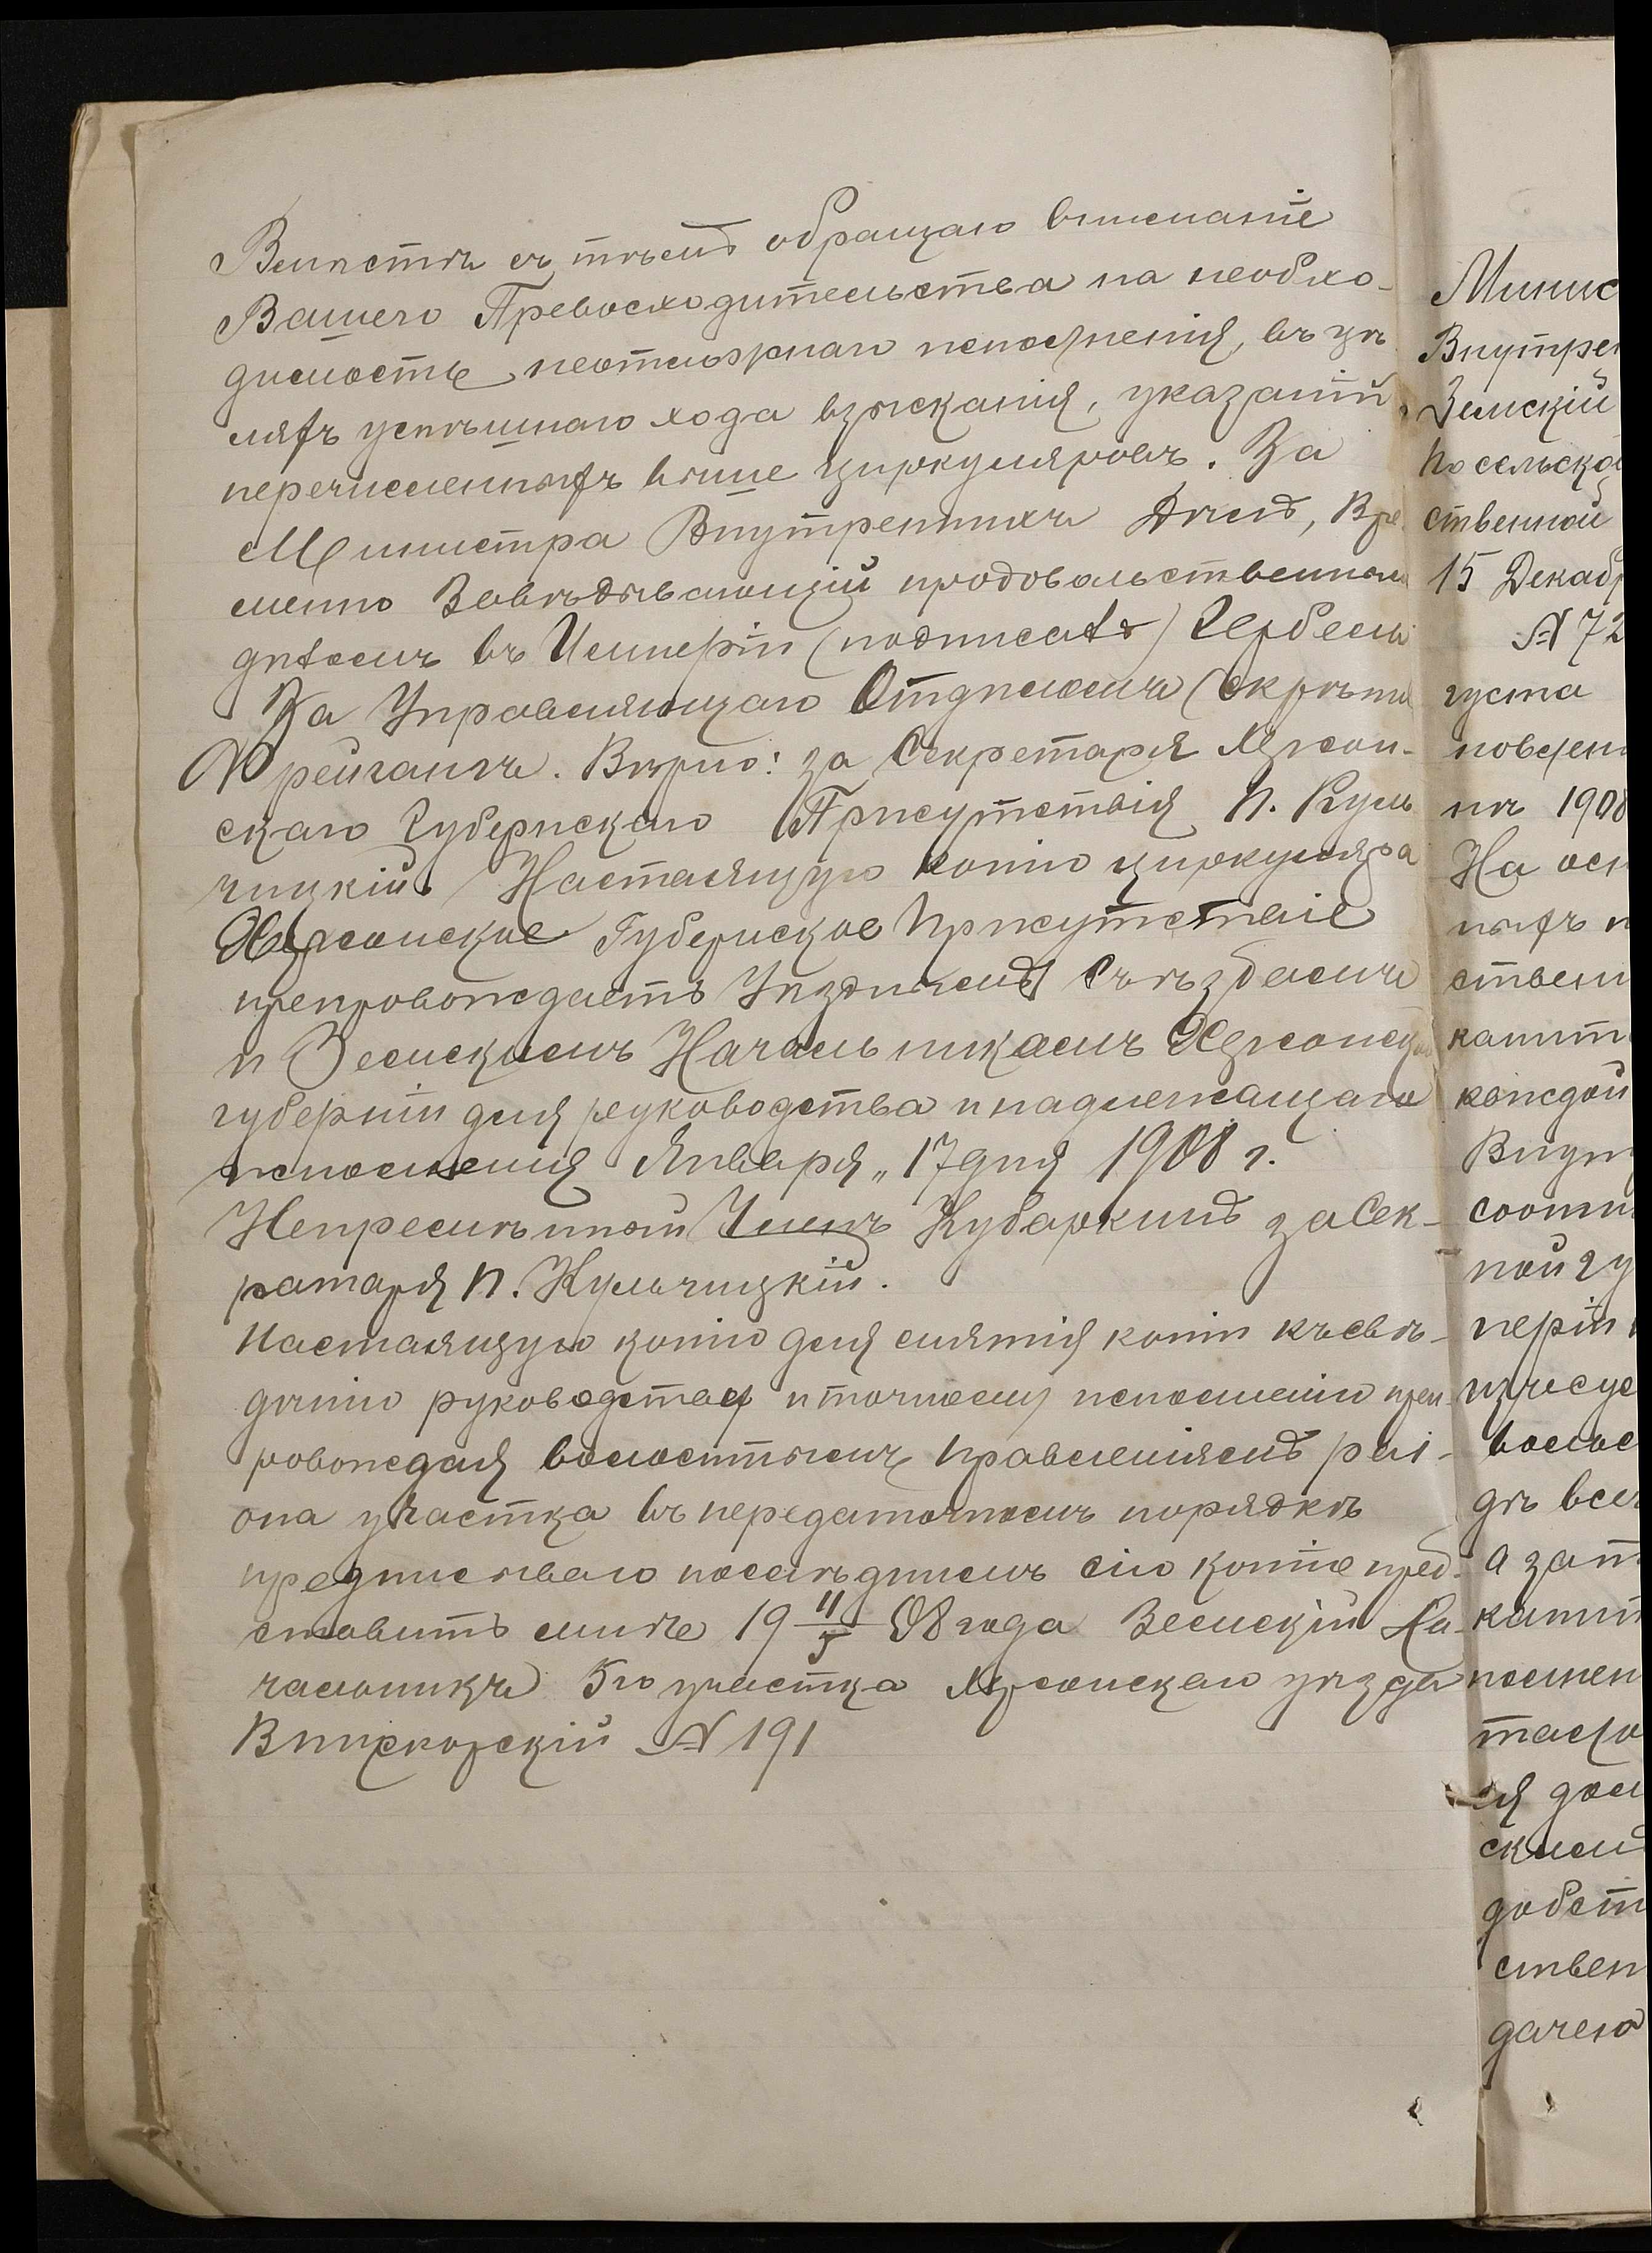 Вмѣстѣ съ тѣмъ обращаю вниманіе
Вашего Превосходительства на необхо-
димость неотложнаго исполненія, въ цѣ
ляхъ успѣшнаго хода взысканія, указаній
перечисленныхъ выше циркуляровъ. За
Министра Внутреннихъ Дѣлъ, Вре
менно Завѣдывающій продовольственнымъ
дѣломъ въ Имперіи (подписалъ) Гербель
За Управляющаго Отдѣломъ (скрѣпи
Фрейгангъ. Вѣрно: за Секретаря Херсон-
скаго Губернскаго Присутствія П. Куль
чицкій. Настоящую копію циркуляра
Херсонское Губернское Присутствіе
препровождаетъ Уѣзднымъ Съѣздамъ
и Земскимъ Начальникамъ Херсонской
губерніи для руководства и надлежащаго
исполненія Января „17 дня 1908 г.
Непремѣнный Членъ Кубаркинъ за Сек-
ратаря П. Кульчицкій.
Настоящую копію для снятія копіи къ свѣ-
дѣнію руководства и точному исполненію преп-
ровождая волостнымъ правленіямъ раі-
она участка въ передаточномъ порядкѣ
предписываю послѣднимъ сію копіе пред-
ставить мнѣ 19 11/5 08 года Земскій На-
чальникъ 5го участка Херсонскаго уѣзда
№ 191
Минис
Внутрен
Земскій
по сельско
ственной
15 Декабр
№ 72
густа
повелен
нѣ 1908
На осн
ныхъ
ствен
капит
каждой
Внут
соотв
ной гу
періи
исчис
волос
дѣ всег
а зат
капит
ствен